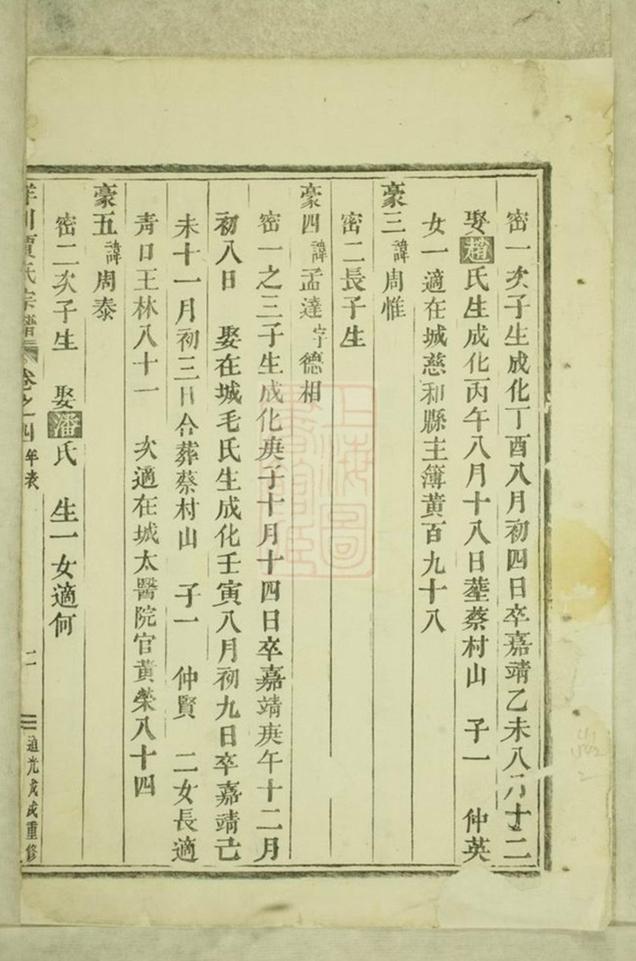 密一次子生成化丁酉八月初四日卒嘉靖乙未八月十二
娶趙氏生成化丙午八月十八日塟蔡村山 子一 仲英
女一適在城慈和縣主簿黃百九十八
豪三 諱周惟
密二長子生
豪四 諱孟達字德相
密一之三子生成化庚子十月十四日卒嘉靖庚午十二月
初八日 娶在城毛氏生成化壬寅八月初九日卒嘉靖己
未十一月初三日合葬蔡村山 子一 仲賢 二女長適
靑口王林八十一 次適在城太醫院官黃榮八十四
豪五 諱周泰
密二次子生 娶潘氏 生一女適何
賈氏宗譜 卷之四 年表 二 道光戊戌重修